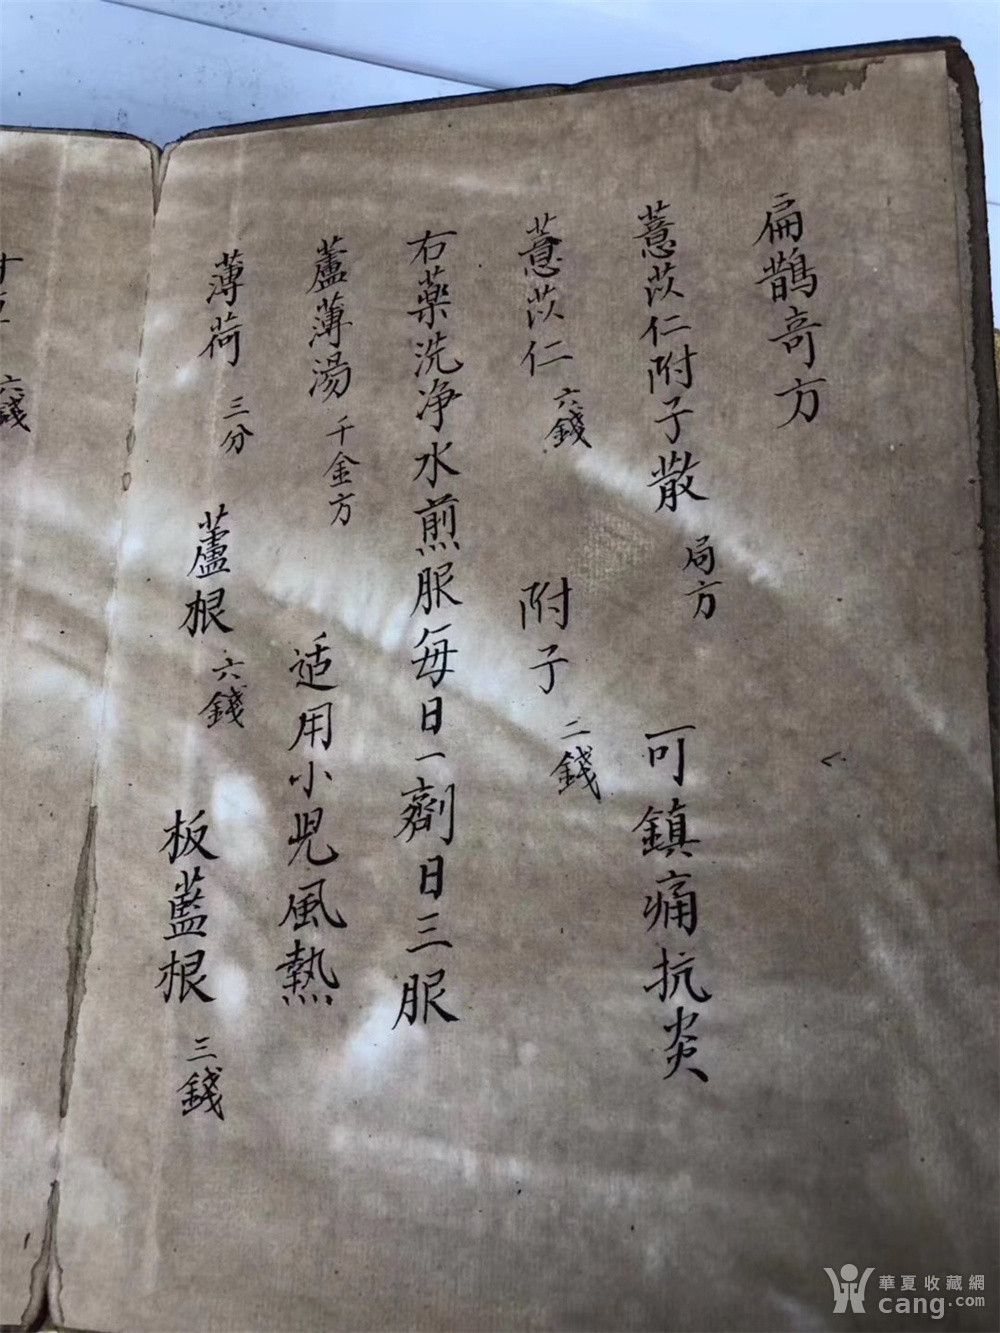 扁鵲奇方
薏苡仁附子散 局方 可鎮痛抗炎
薏苡仁 六錢 附子 二錢
右藥洗净水煎服每日一劑日三服
蘆薄湯 千金方 适用小児風熱
薄荷 三分 蘆根 六錢 板藍根 三錢
六錢
華夏收藏網
cang.com